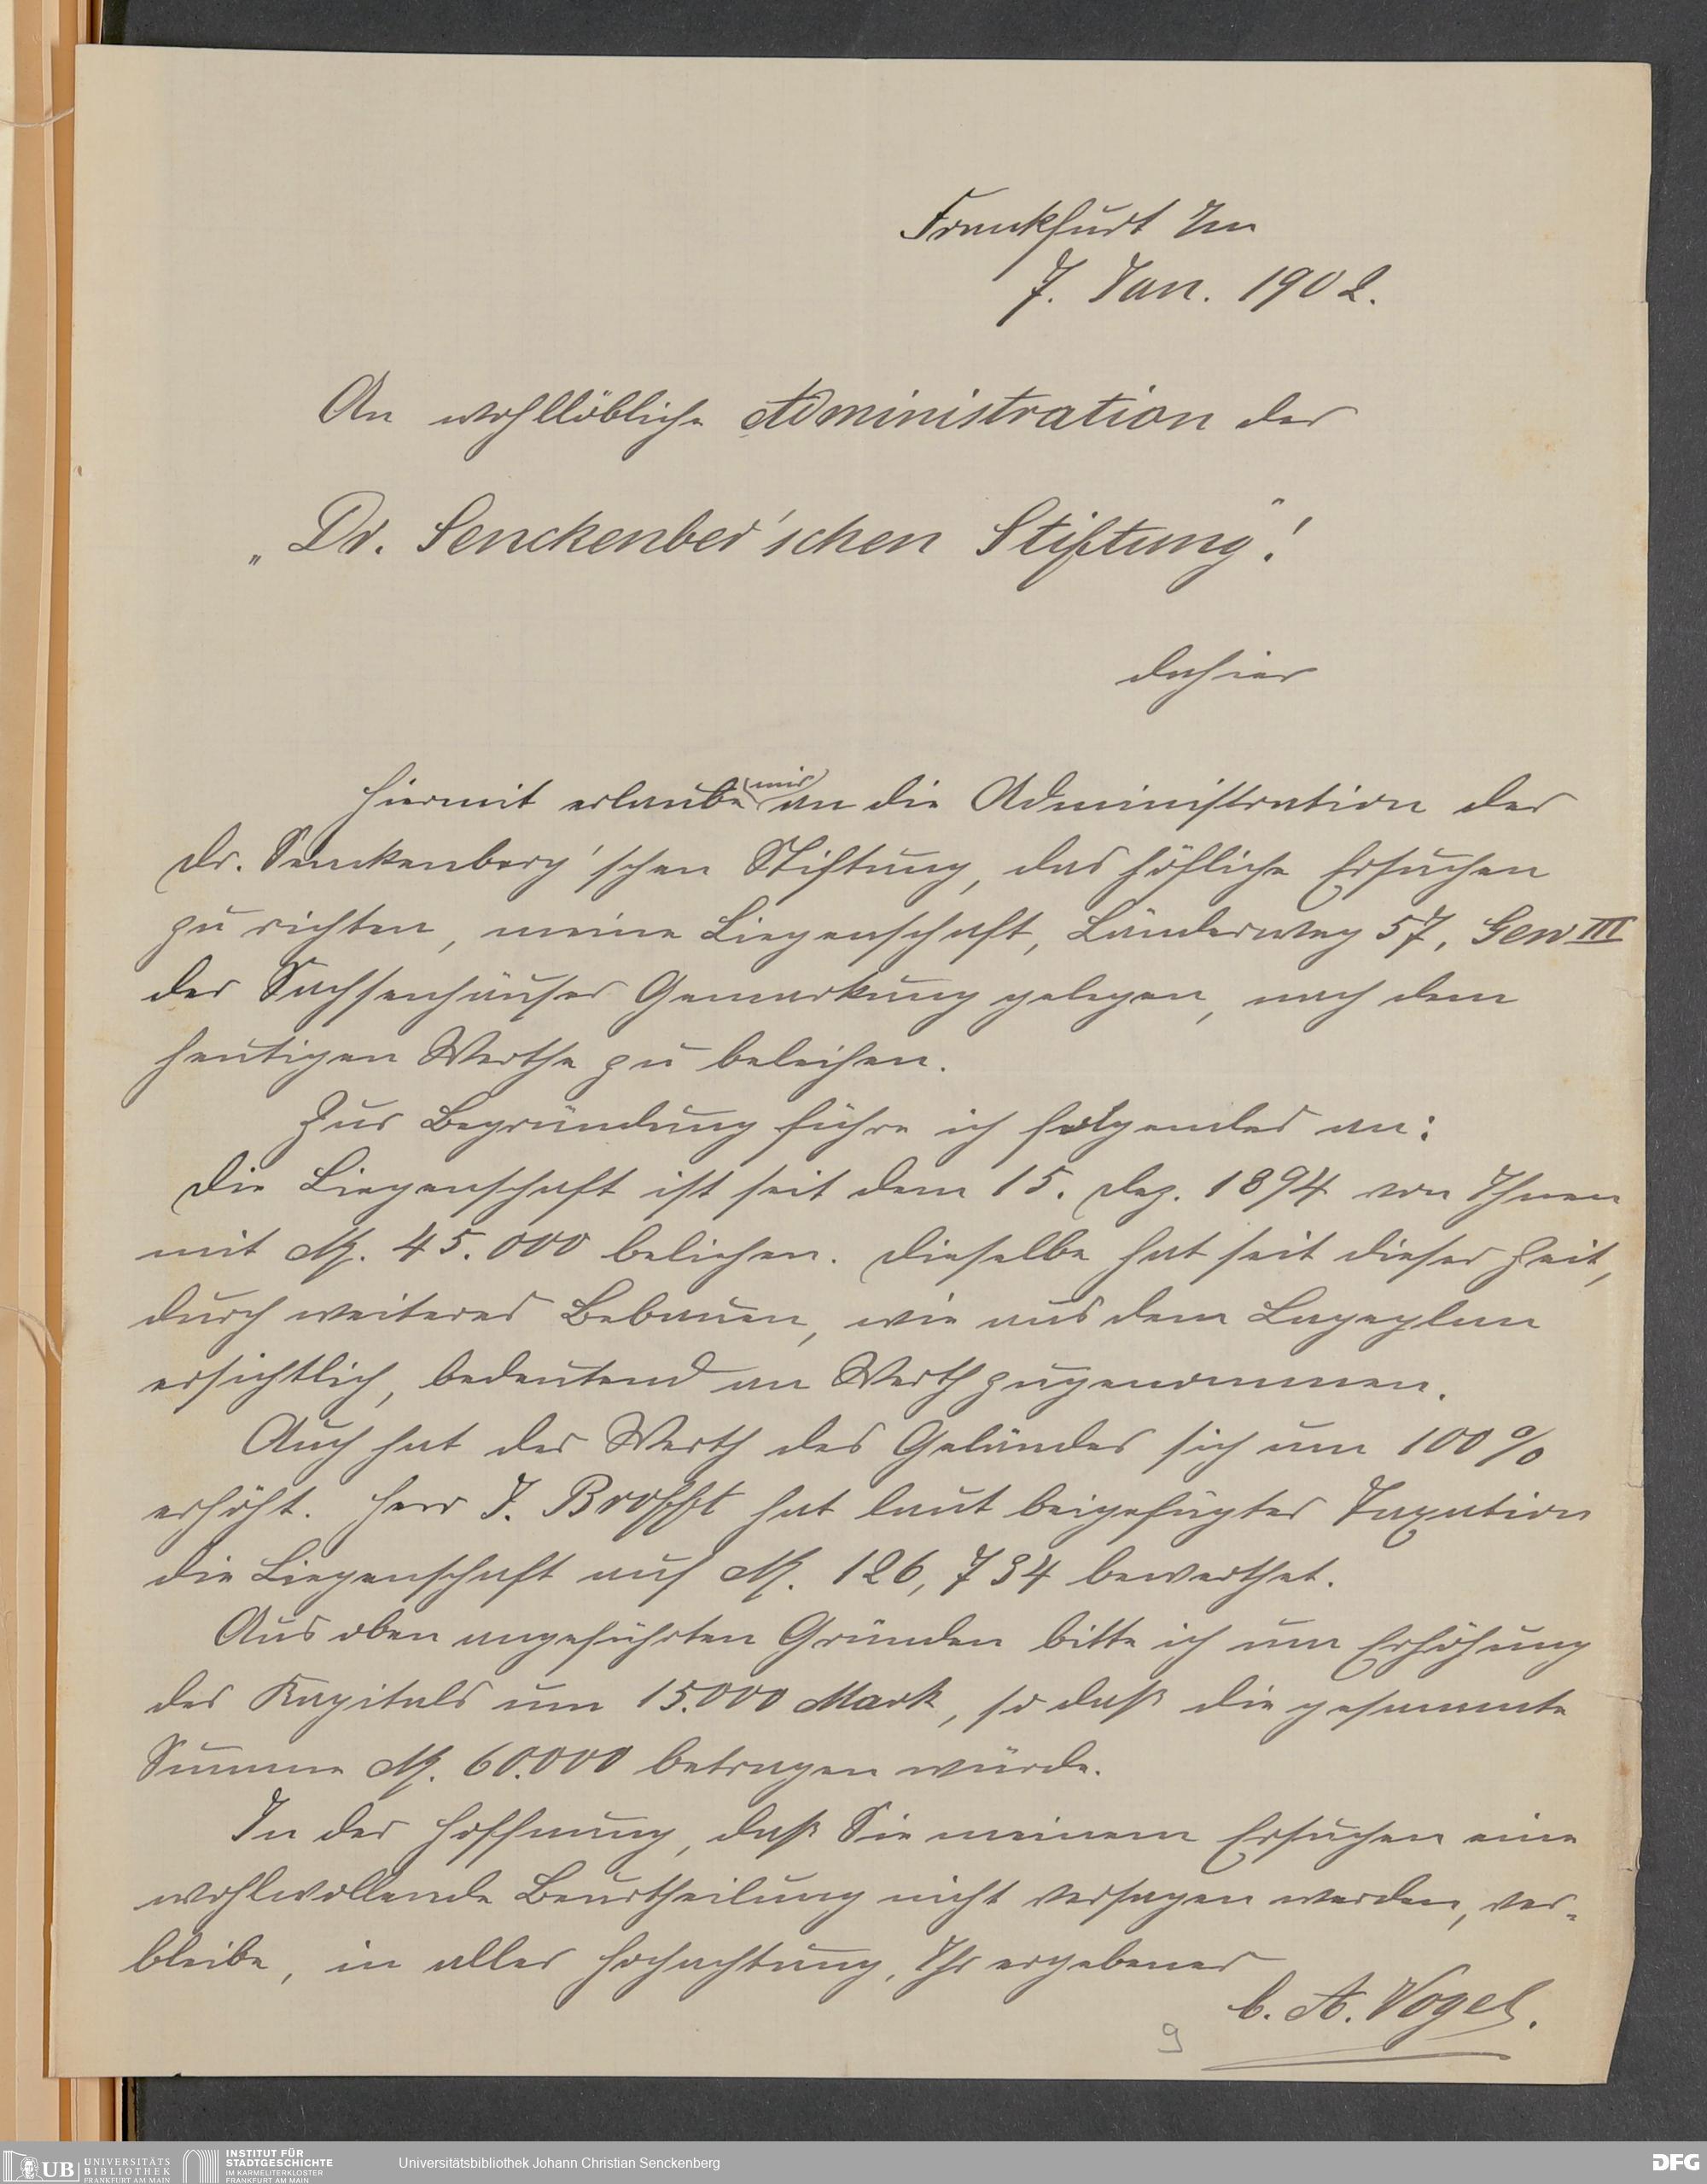 Frankfurt a/m
7. Jan. 1902.
An wohllöbliche Administration der
„Dr. Senckenber'schen Stiftung“!
dahier
Hiermit erlaube mir an die Administration der
Dr. Senckenberg'schen Stiftung, das höfliche Ersuchen
zu richten, meine Liegenschaft, Länderweg 57, Gew III
der Sachsenhäuser Gemarkung gelegen, nach dem
heutigen Werthe zu beleihen.
Zur Begründung führe ich folgendes an:
Die Liegenschaft ist seit dem 15. Dez. 1894 von Ihnen
mit M. 45.000 beliehen. Dieselbe hat seit dieser Zeit,
durch weiteres Bebauen, wie aus dem Lageplan
ersichtlich, bedeutend an Werth zugenommen.
Auch hat der Werth des Geländes sich um 100%
erhöht. Herr J. Brofft hat laut beigefügter Taxation
die Liegenschaft auf M. 126,734 bewerthet.
Aus oben angeführten Gründen bitte ich um Erhöhung
des Kapitals um 15.000 Mark, so daß die gesammte
Summe M. 60.000 betragen würde.
In der Hoffnung, daß Sie meinem Ersuchen eine
wohlwollende Beurtheilung nicht versagen werden, ver-
bleibe, in aller Hochachtung, Ihr ergebener
C. A. Vogel.
9
UB UNIVERSITÄTS BIBLIOTHEK FRANKFURT AM MAIN
INSTITUT FÜR STADTGESCHICHTE IM KARMELITERKLOSTER FRANKFURT AM MAIN
Universitätsbibliothek Johann Christian Senckenberg
DFG